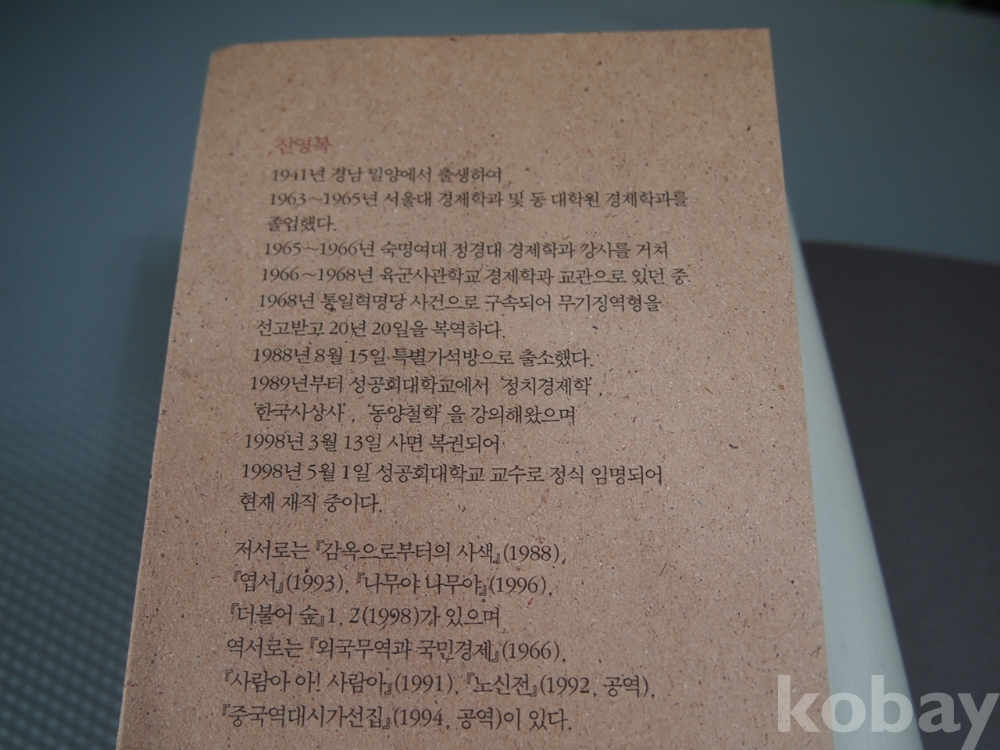 신영복
1941년 경남 밀양에서 출생하여
1963~1965년 서울대 경제학과 및 동 대학원 경제학과를
졸업했다.
1965~1966년 숙명여대 정경대 경제학과 강사를 거쳐
1966~1968년 육군사관학교 경제학과 교관으로 있던 중
1968년 통일혁명당 사건으로 구속되어 무기징역형을
선고받고 20년 20일을 복역하다.
1988년 8월 15일 특별가석방으로 출소했다.
1989년부터 성공회대학교에서 '정치경제학',
'한국사상사', '동양철학'을 강의해왔으며
1998년 3월 13일 사면 복권되어
1998년 5월 1일 성공회대학교 교수로 정식 임명되어
현재 재직 중이다.
저서로는 『감옥으로부터의 사색』(1988),
『엽서』(1993), 『나무야 나무야』(1996),
『더불어 숲』1, 2(1998)가 있으며
역서로는 『외국무역과 국민경제』(1966),
『사람아 아! 사람아』(1991), 『노신전』(1992, 공역),
『중국역대시가선집』(1994, 공역)이 있다.
kobay